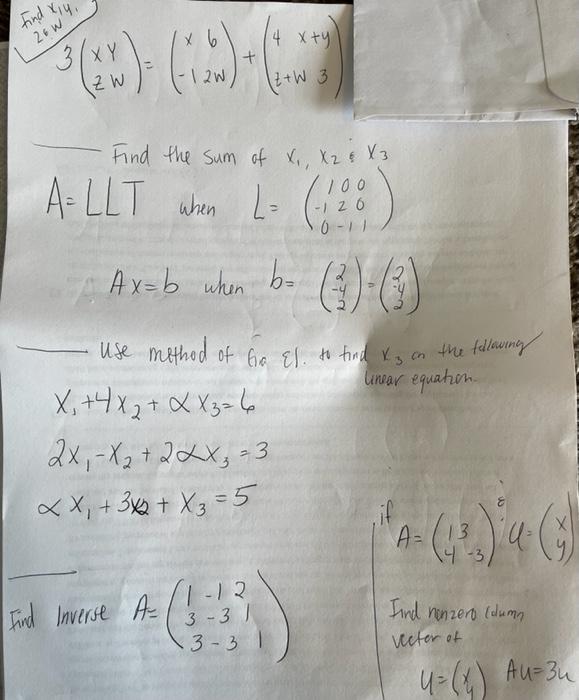 Find x, y,
z & w
3 (x y) = (x 6) + (4 x+y)
(z w) (-1 2w) (z+w 3)
Find the sum of x₁, x₂ & x₃
A = LLT when L = (1 0 0)
(-1 2 0)
(0 -1 1)
Ax=b when b= (2 -4 2) = (2 -4 2)
Use method of Ga El. to find x₃ on the following
linear equation.
x₁+4x₂+αx₃=6
2x₁-x₂+2αx₃=3
αx₁+3x2+x₃=5
Find Inverse A= (1 -1 2)
(3 -3 1)
(3 -3 1)
if A= (1 3) & u= (x)
(4 -3) (y)
Find nonzero column
vector of
u=(x y) Au=3u